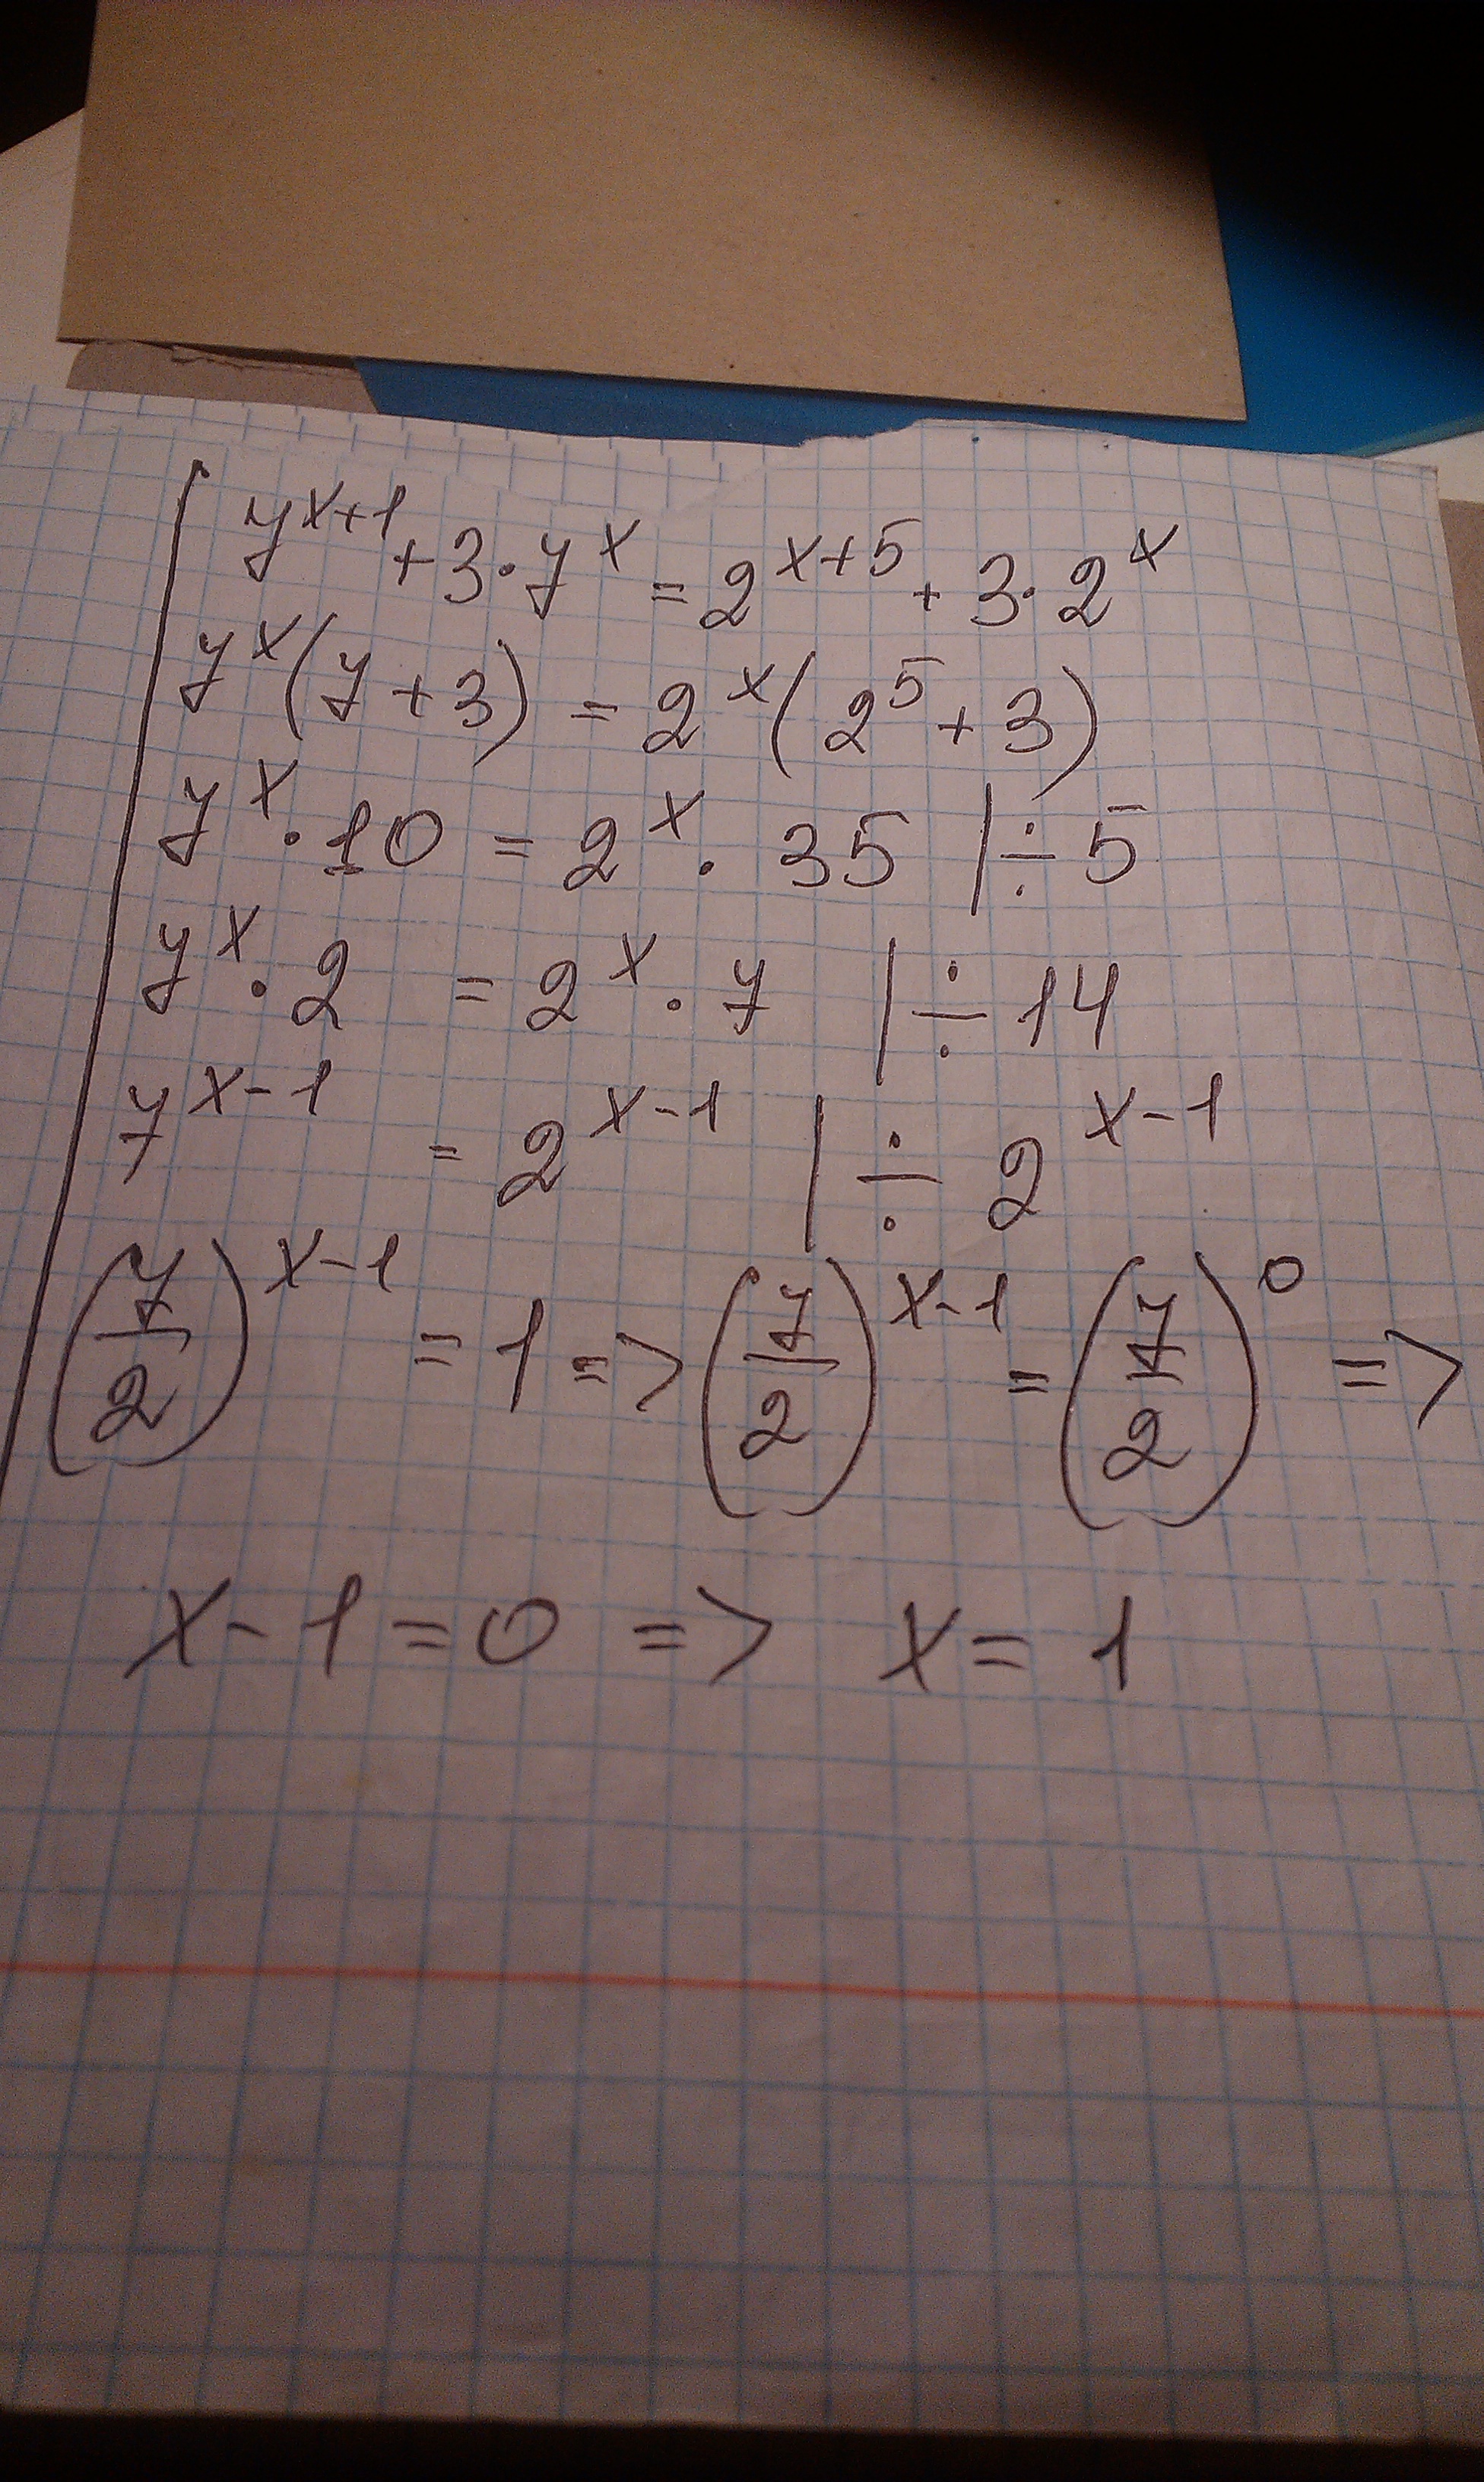 7^{x+1} + 3·7^x = 2^{x+5} + 3·2^x
7^x(7+3) = 2^x(2^5+3)
7^x·10 = 2^x·35 |÷5
7^x·2 = 2^x·7 |÷14
7^{x-1} = 2^{x-1} |÷2^{x-1}
(7/2)^{x-1} = 1 => (7/2)^{x-1} = (7/2)^0 =>
x-1=0 => x=1